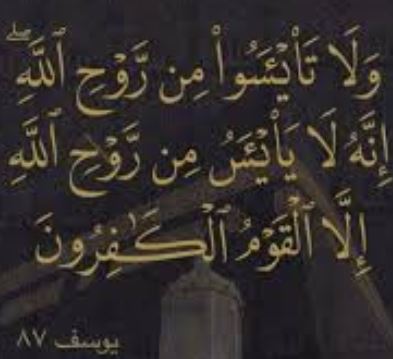 وَلَا تَا۟يْـَٔسُوا۟ مِن رَّوْحِ ٱللَّهِ ۖ
إِنَّهُۥ لَا يَا۟يْـَٔسُ مِن رَّوْحِ ٱللَّهِ
إِلَّا ٱلْقَوْمُ ٱلْكَـٰفِرُونَ
يوسف ٨٧